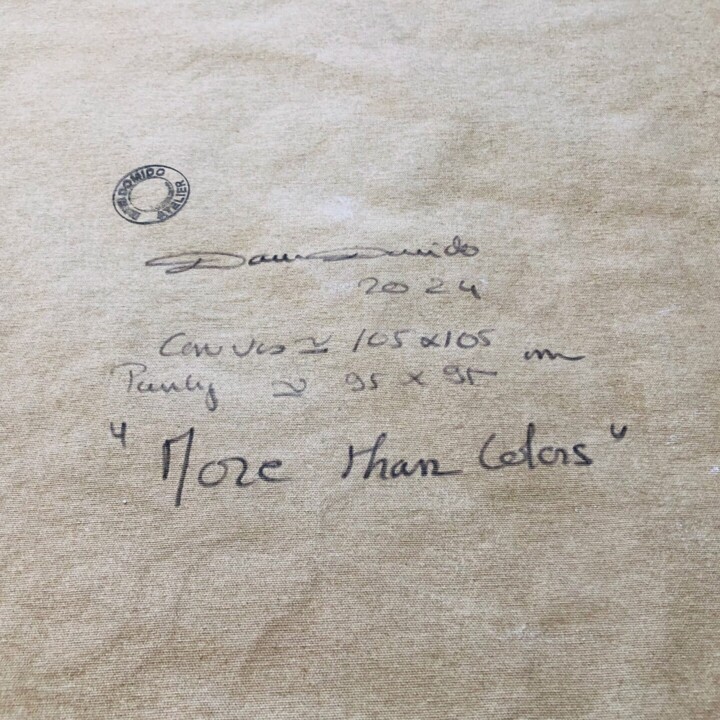 DOMIDO ATELIER
2024
Canvas ≃ 105 x 105 cm
≃ 95 x 95
"More than Colors"